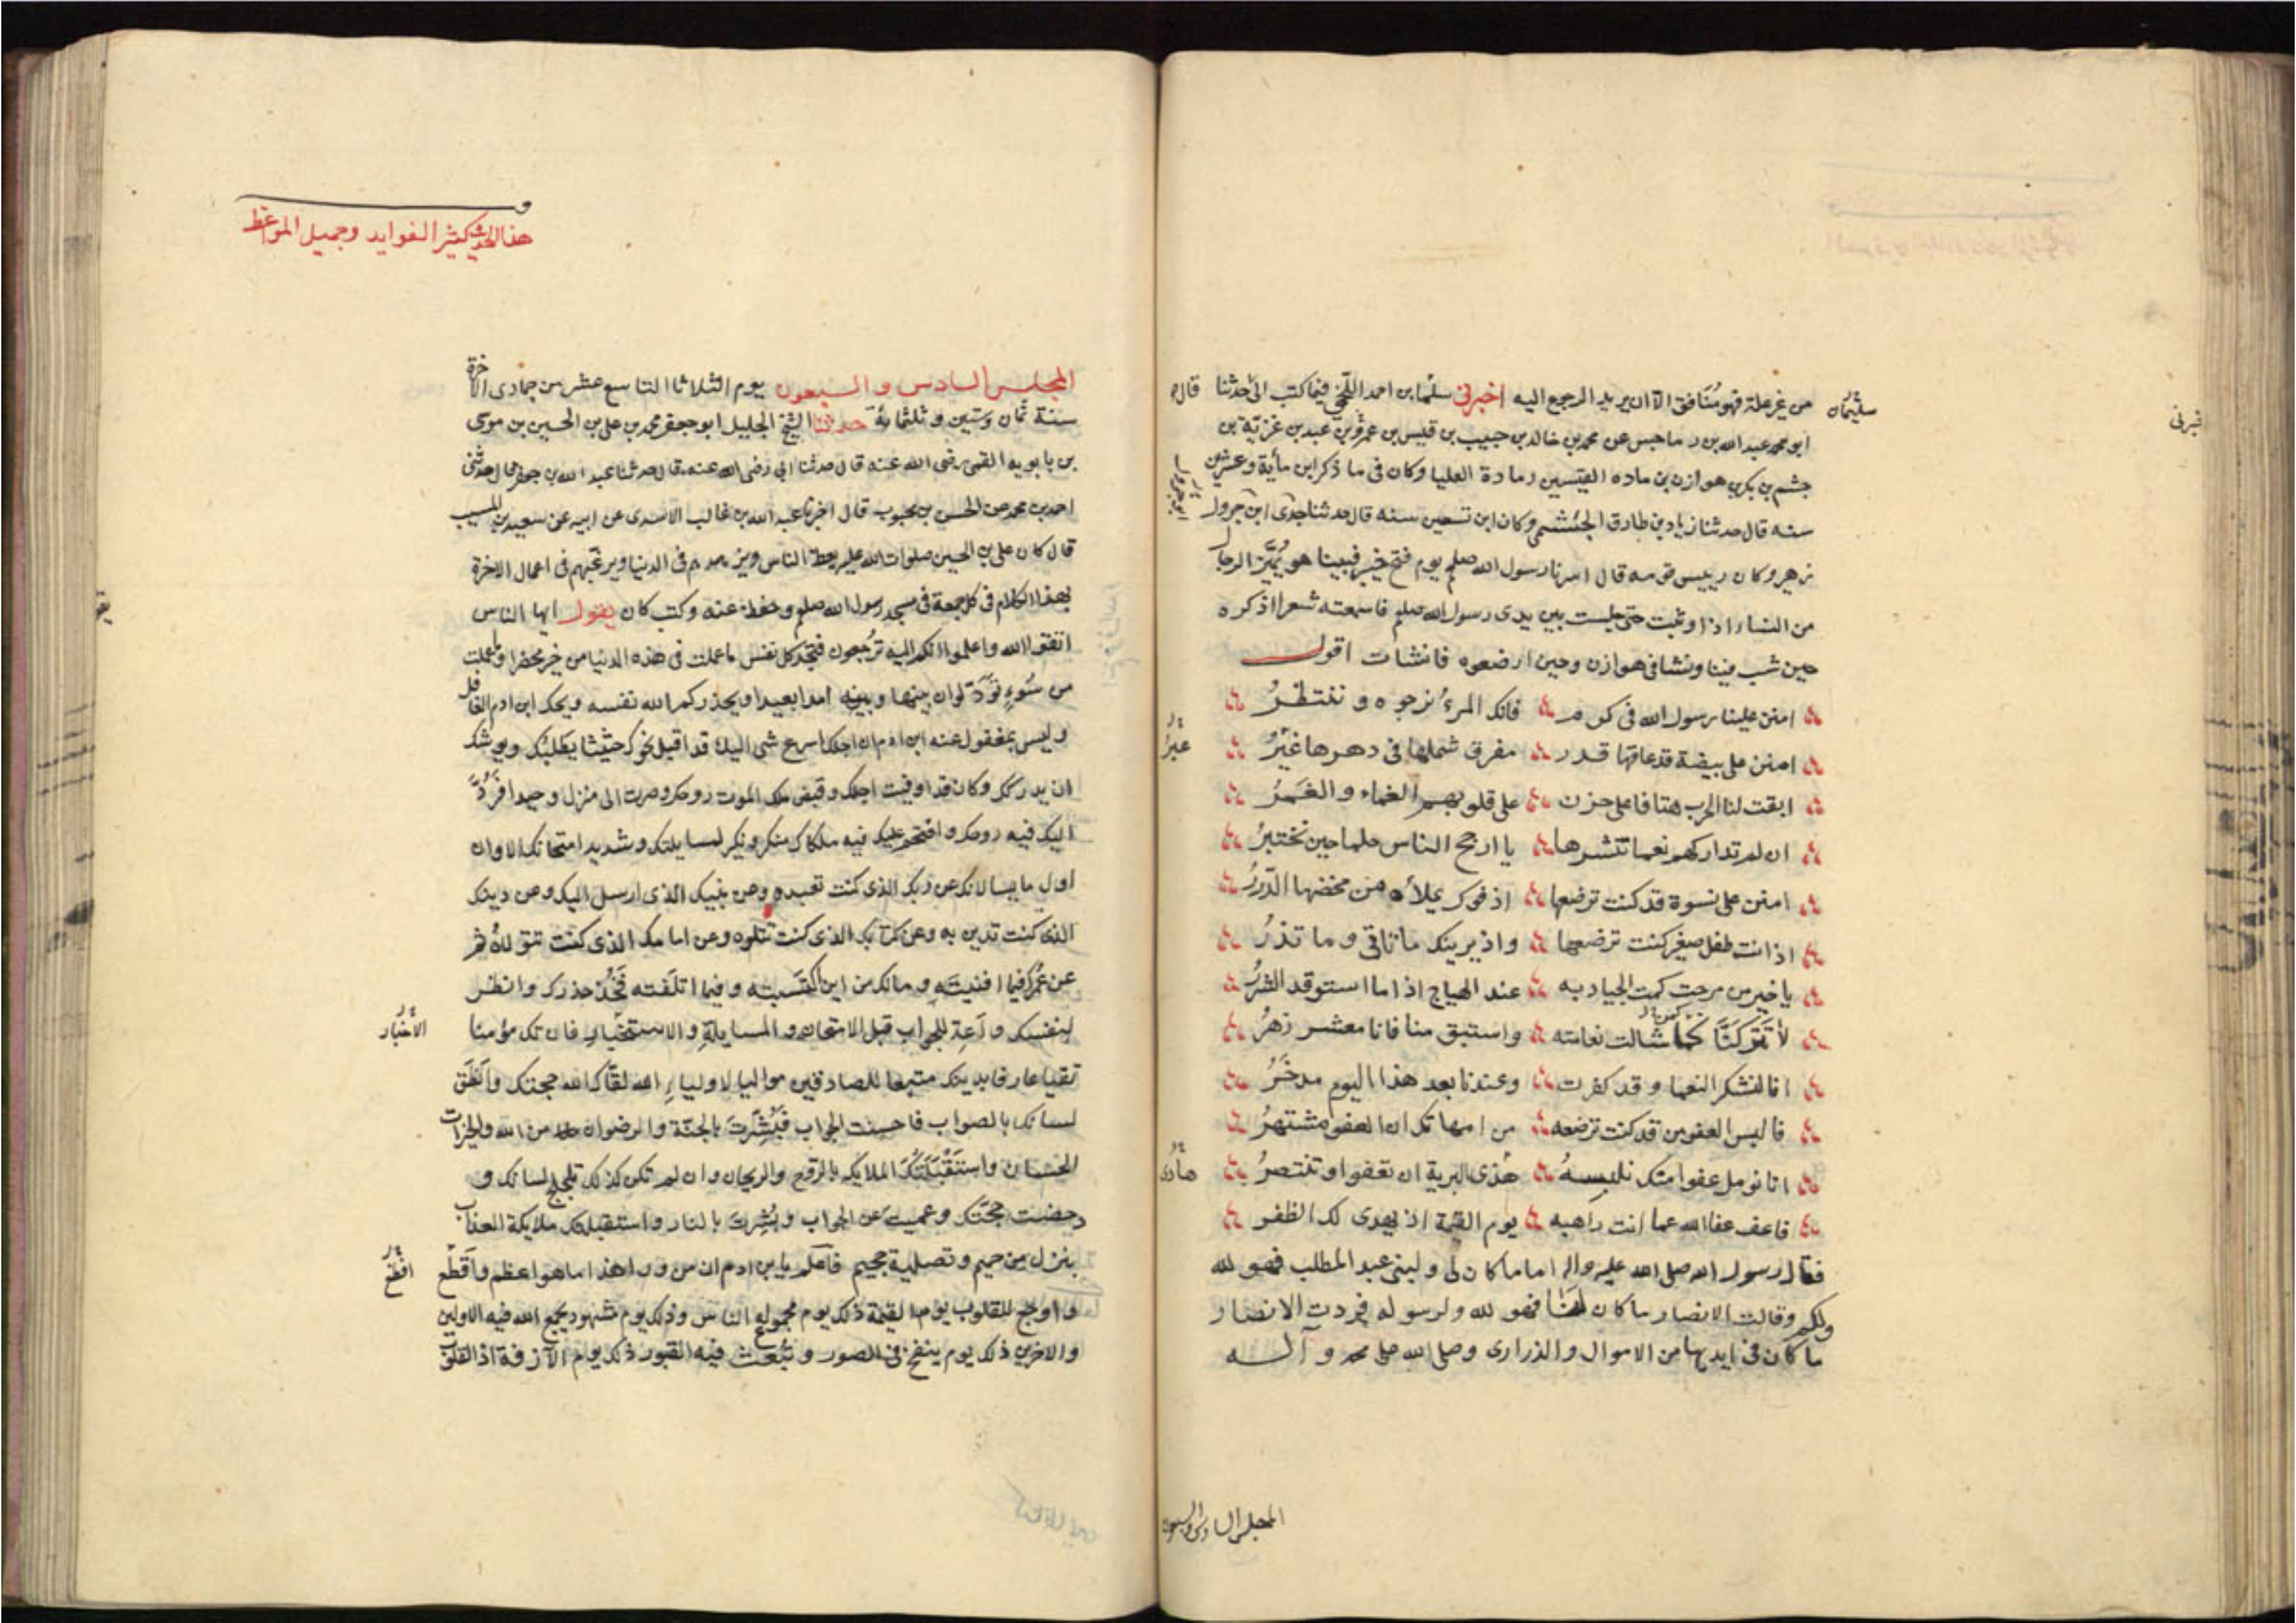 من غير علة فهو منافق الا ان يريد الرجوع اليه اخبرني سليمان بن احمد اللخمي فيما كتب الي حدثنا
قال
سليمان
خبرني
ابو محمد عبد الله بن رماحس عن محمد بن خالد بن حبيب بن قيس بن عمرو بن عبد بن غزية بن
جشم بن بكر بن هوازن بن ماده القيسين رمادة العليا وكان في ما ذكر ابن مأية وعشرين
سنه قال حدثنا زياد بن طارق الجشمي وكان ابن تسعين سنه قال حدثنا جدي ابن جرول
ابو جرول
زهير وكان رييس قومه قال اسرنا رسول الله صلعم يوم فتح خيبر فبينا هو يُمَيِّز الرجال
من النساء اذا وثبت حتى جلست بين يدي رسول الله صلعم فاسمعته شعرا اذكره
حين شب فينا ونشا في هوازن وحين ارضعوه فانشات اقول
امنن علينا رسول الله في كرم فانك المرءُ نرجوه وننتظرُ
امنن على بيضة قد عاقها قدر مفرق شملها في دهرها غيَرُ
عبرُ
ابقت لنا الحرب هتافا على حزن على قلوبهم الغماء والغَمَرُ
ان لم تداركهم نعما تنشرها يا ارجح الناس حلما حين تختبرُ
امنن على نسوة قد كنت ترضعها اذ فوك يملأه من محضها الدِّررُ
اذ انت طفل صغير كنت ترضعها واذ يرينك ما تاتي وما تذرُ
يا خير من مرحت كمت الجياد به عند الهياج اذا ما استوقد الشررُ
لا تتركنّا كما شالت نعامته واستبق منا فانا معشر زهرُ
كمن
انا لنشكر النعما وقد كفرت وعندنا بعد هذا اليوم مدخَرُ
فالبس العفو من قد كنت ترضعه من امهاتك ان العفو مشتهرُ
انا نومل عفوا منك نلبسهُ هذي البرية ان تعفوا وتنتصرُ
هادى
فاعف عفا الله عما انت راهبه يوم القيمة اذ يهدى لك الظفر
فقال رسول الله صلى الله عليه واله اما ما كان لي ولبني عبد المطلب فهو لله
ولكم وقالت الانصار ما كان لنا فهو لله ولرسوله فردت الانصار
ما كان في ايديها من الاموال والذراري وصلى الله على محمد وآله
المجلس السادس والسبعون
هذا الحديث كثير الفوايد وجميل المواعظ
المجلس السادس والسبعون يوم الثلاثا التاسع عشر من جمادى الاخرة
سنة ثمان وستين وثلثمائة حدثنا الشيخ الجليل ابو جعفر محمد بن علي بن الحسين بن موسى
بن بابويه القمي رضي الله عنه قال حدثنا ابي رضي الله عنه قال حدثنا عبد الله بن جعفر قال حدثني
احمد بن محمد عن الحسن بن محبوب قال اخبرنا عبد الله بن غالب الاسدي عن ابيه عن سعيد بن المسيب
قال كان علي بن الحسين صلوات الله عليه يعظ الناس ويزهدهم في الدنيا ويرغبهم في اعمال الاخرة
بهذا الكلام في كل جمعة في مسجد رسول الله صلعم وحفظ عنه وكتب كان يقول ايها الناس
اتقوا الله واعلموا انكم اليه ترجعون فتجد كل نفس ما عملت في هذه الدنيا من خير محضرا وما عملت
من سُوءٍ تَوَدُّ لو ان بينها وبينه امدا بعيدا ويحذركم الله نفسه ويحك ابن ادم الغافل
وليس بمغفول عنه ابن ادم ان اجلك اسرع شي اليك قد اقبل نحوك حثيثا يطلبك ويوشك
ان يدركك وكان قد اوفيت اجلك وقبض ملك الموت روحك وصرت الى منزل وحيدا فَرُدَّ
اليك فيه روحك واقتحم عليك فيه ملكاك منكر ونكير لمسايلتك وشديد امتحانك الا وان
اول ما يسالانك عن ربك الذي كنت تعبده وعن نبيك الذي ارسل اليك وعن دينك
الذي كنت تدين به وعن كتابك الذي كنت تتلوه وعن امامك الذي كنت تتولاه ثم
عن عُمرك فيما افنيته ومالك من اين اكتَسبته وفيما اتلفته فَخُذ حذرك وانظر
لنفسك واَعِد للجواب قبل الامتحان والمسايلة والاستخبار فان تك مؤمنا
الاختبار
تقيا عارفا بدينك متبعا للصادقين مواليا لاولياءِ الله لقّاك الله حجتك واَنطَق
لسانك بالصواب فاحسنت الجواب فبُشِّرتَ بالجنّة والرضوان من الله والخيرات
الحسان واستَقْبَلَتكَ الملايكه بالروح والريحان وان لم تكن كذلك تلجلج لسانك و
دحضت حجتك وعميتَ عن الجواب وبُشِّرتَ بالنار واستقبلتك ملايكة العذاب
بنزل من حميم وتصلية جحيم فاعلم يا بن ادم ان من وراء هذا ما هو اعظم واَقطَع
افظع
واوجع للقلوب يوم القيمة ذلك يوم مجموع الناس وذلك يوم مشهود يجمع الله فيه الاولين
والاخرين ذلك يوم ينفخ في الصور وتُبُعثَ فيه القبور ذلك يوم الآزفة اذ القلوب